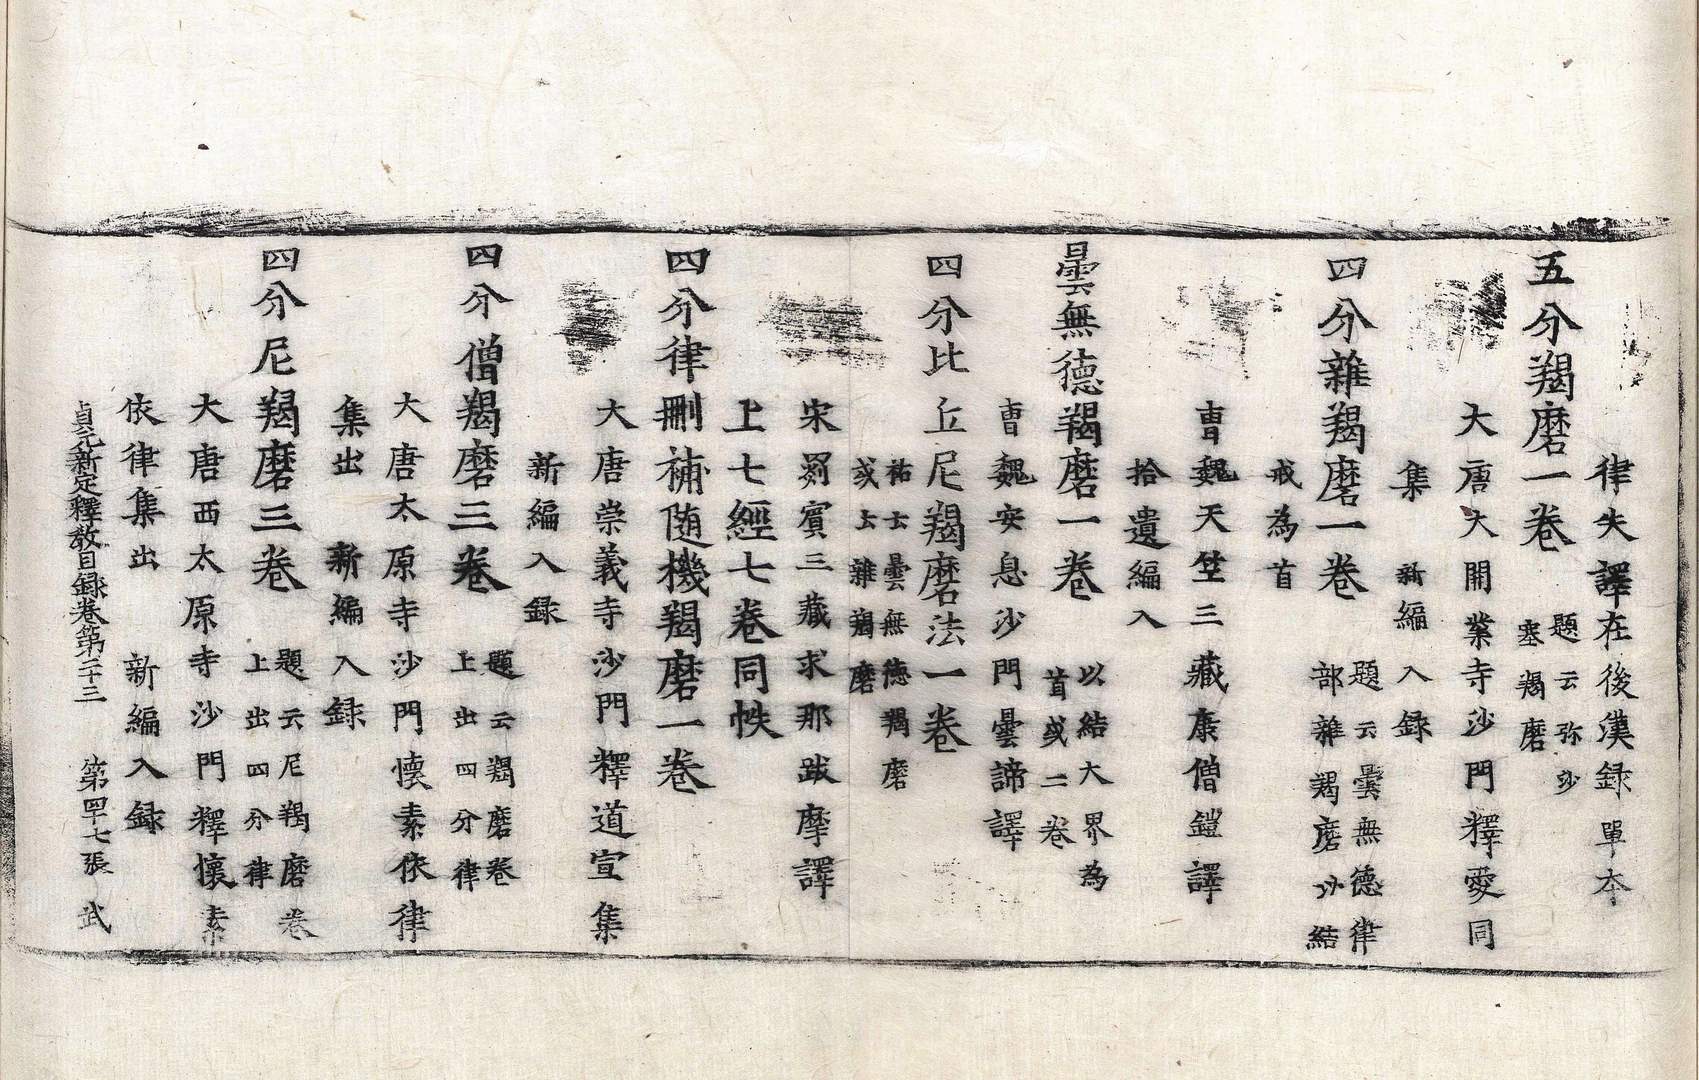 律失譯在後漢録 單本
五分羯磨一卷 題云弥沙
塞羯磨
大唐大開業寺沙門釋愛同
集 新編入録
四分雜羯磨一卷 題云曇無德律
部雜羯磨以結
戒為首
曹魏天竺三藏康僧鎧譯
拾遺編入
曇無德羯磨一卷 以結大界為
首或二卷
曹魏安息沙門曇諦譯
四分比丘尼羯磨法一卷
祐云曇無德羯磨
或云雜羯磨
宋罽賓三藏求那跋摩譯
上七經七卷同帙
四分律刪補随機羯磨一卷
大唐崇義寺沙門釋道宣集
新編入録
四分僧羯磨三卷 題云羯磨卷
上出四分律
大唐太原寺沙門懷素依律
集出 新編入録
四分尼羯磨三卷 題云尼羯磨卷
上出四分律
大唐西太原寺沙門釋懷素
依律集出 新編入録
貞元新定釋教目録卷第二十三 第四十七張 武